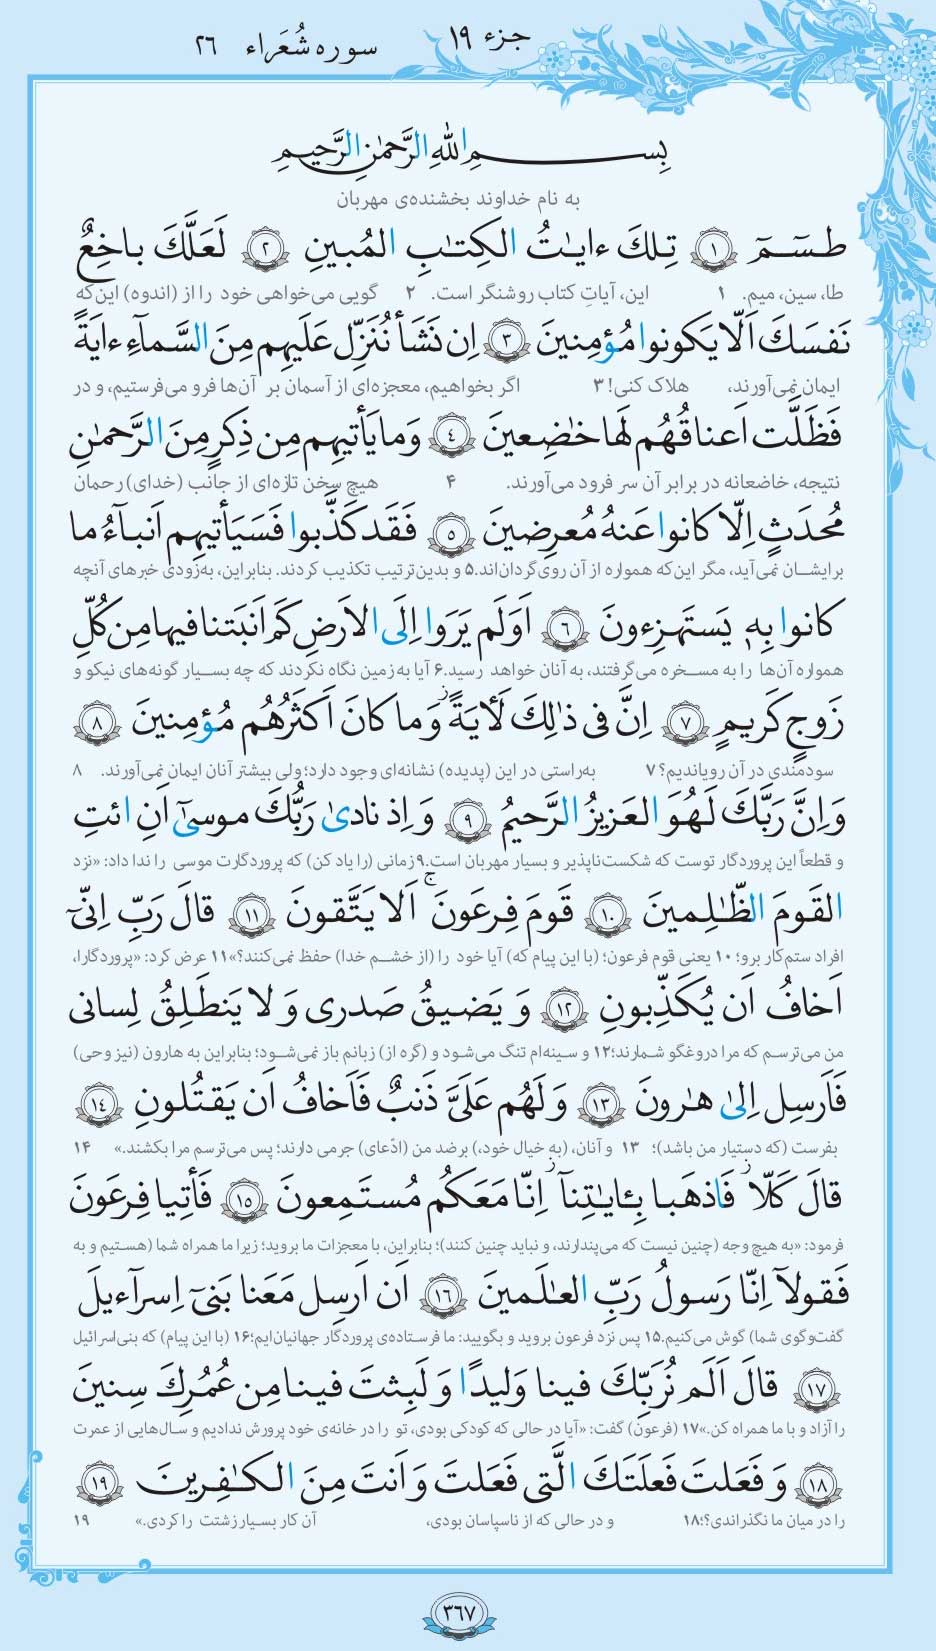 جزء ١٩ سوره شُعَراء ٢٦
بِسمِ اللهِ الرَّحمٰنِ الرَّحيمِ
به نام خداوند بخشنده‌ی مهربان
طسٓمٓ ١ تِلكَ ءايٰتُ الكِتٰبِ المُبينِ ٢ لَعَلَّكَ باخِعٌ
طا، سین، میم. ۱ این، آیاتِ کتاب روشنگر است. ۲ گویی می‌خواهی خود را از (اندوه) این‌که
نَفسَكَ اَلّا يَكونوا مُؤمِنينَ ٣ اِن نَشَأ نُنَزِّل عَلَيهِم مِنَ السَّماءِ ءايَةً
ایمان نمی‌آورند، هلاک کنی! ۳ اگر بخواهیم، معجزه‌ای از آسمان بر آن‌ها فرو می‌فرستیم، و در
فَظَلَّت اَعناقُهُم لَها خٰضِعينَ ٤ وَما يَأتيهِم مِن ذِكرٍ مِنَ الرَّحمٰنِ
نتیجه، خاضعانه در برابر آن سر فرود می‌آورند. ۴ هیچ سخن تازه‌ای از جانب (خدای) رحمان
مُحدَثٍ اِلّا كانوا عَنهُ مُعرِضينَ ٥ فَقَد كَذَّبوا فَسَيَأتيهِم اَنبٰٓؤُا ما
برایشان نمی‌آید، مگر این‌که همواره از آن روی‌گردان‌اند.۵ و بدین‌ترتیب تکذیب کردند. بنابراین، به‌زودی خبرهای آنچه
كانوا بِهٖ يَستَهزِءونَ ٦ اَوَلَم يَرَوا اِلَى الاَرضِ كَم اَنبَتنا فيها مِن كُلِّ
همواره آن‌ها را به مسخره می‌گرفتند، به آنان خواهد رسید.۶ آیا به‌زمین نگاه نکردند که چه بسیار گونه‌های نیکو و
زَوجٍ كَريمٍ ٧ اِنَّ فى ذٰلِكَ لَأيَةً ز وَما كانَ اَكثَرُهُم مُؤمِنينَ ٨
سودمندی در آن رویاندیم؟ ۷ به‌راستی در این (پدیده) نشانه‌ای وجود دارد؛ ولی بیشتر آنان ایمان نمی‌آورند. ۸
وَ اِنَّ رَبَّكَ لَهُوَ العَزيزُ الرَّحيمُ ٩ وَ اِذ نادىٰ رَبُّكَ موسىٰٓ اَنِ ائتِ
و قطعاً این پروردگار توست که شکست‌ناپذیر و بسیار مهربان است.۹ زمانی (را یاد کن) که پروردگارت موسی را ندا داد: «نزد
القَومَ الظّٰلِمينَ ١٠ قَومَ فِرعَونَ ج اَلا يَتَّقونَ ١١ قالَ رَبِّ اِنّىٓ
افراد ستم‌کار برو؛ ۱۰ یعنی قوم فرعون؛ (با این پیام که) آیا خود را (از خشم خدا) حفظ نمی‌کنند؟»۱۱ عرض کرد: «پروردگارا،
اَخافُ اَن يُكَذِّبونِ ١٢ وَ يَضيقُ صَدرى وَ لا يَنطَلِقُ لِسانى
من می‌ترسم که مرا دروغگو شمارند؛۱۲ و سینه‌ام تنگ می‌شود و (گره از) زبانم باز نمی‌شود؛ بنابراین به هارون (نیز وحی)
فَاَرسِل اِلىٰ هٰرونَ ١٣ وَ لَهُم عَلَىَّ ذَنبٌ فَاَخافُ اَن يَقتُلونِ ١٤
بفرست (که دستیار من باشد)؛ ۱۳ و آنان، (به خیال خود،) برضد من (ادّعای) جرمی دارند؛ پس می‌ترسم مرا بکشند.» ۱۴
قالَ كَلّا ز فَاذهَبا بِـٔايٰتِنآ ز اِنّا مَعَكُم مُستَمِعونَ ١٥ فَأتيا فِرعَونَ
فرمود: «به هیچ وجه (چنین نیست که می‌پندارند، و نباید چنین کنند)؛ بنابراین، با معجزات ما بروید؛ زیرا ما همراه شما (هستیم و به
فَقولآ اِنّا رَسولُ رَبِّ العٰلَمينَ ١٦ اَن اَرسِل مَعَنا بَنىٓ اِسرآءيلَ
گفت‌وگوی شما) گوش می‌کنیم.۱۵ پس نزد فرعون بروید و بگویید: ما فرستاده‌ی پروردگار جهانیان‌ایم؛۱۶ (با این پیام) که بنی‌اسرائیل
١٧ قالَ اَلَم نُرَبِّكَ فينا وَليدًا وَ لَبِثتَ فينا مِن عُمُرِكَ سِنينَ
را آزاد و با ما همراه کن.»۱۷ (فرعون) گفت: «آیا در حالی که کودکی بودی، تو را در خانه‌ی خود پرورش ندادیم و سال‌هایی از عمرت
١٨ وَ فَعَلتَ فَعلَتَكَ الَّتى فَعَلتَ وَ اَنتَ مِنَ الكٰفِرينَ ١٩
را در میان ما نگذراندی؟؛۱۸ و در حالی که از ناسپاسان بودی، آن کار بسیار زشتت را کردی.» ۱۹
٣٦٧